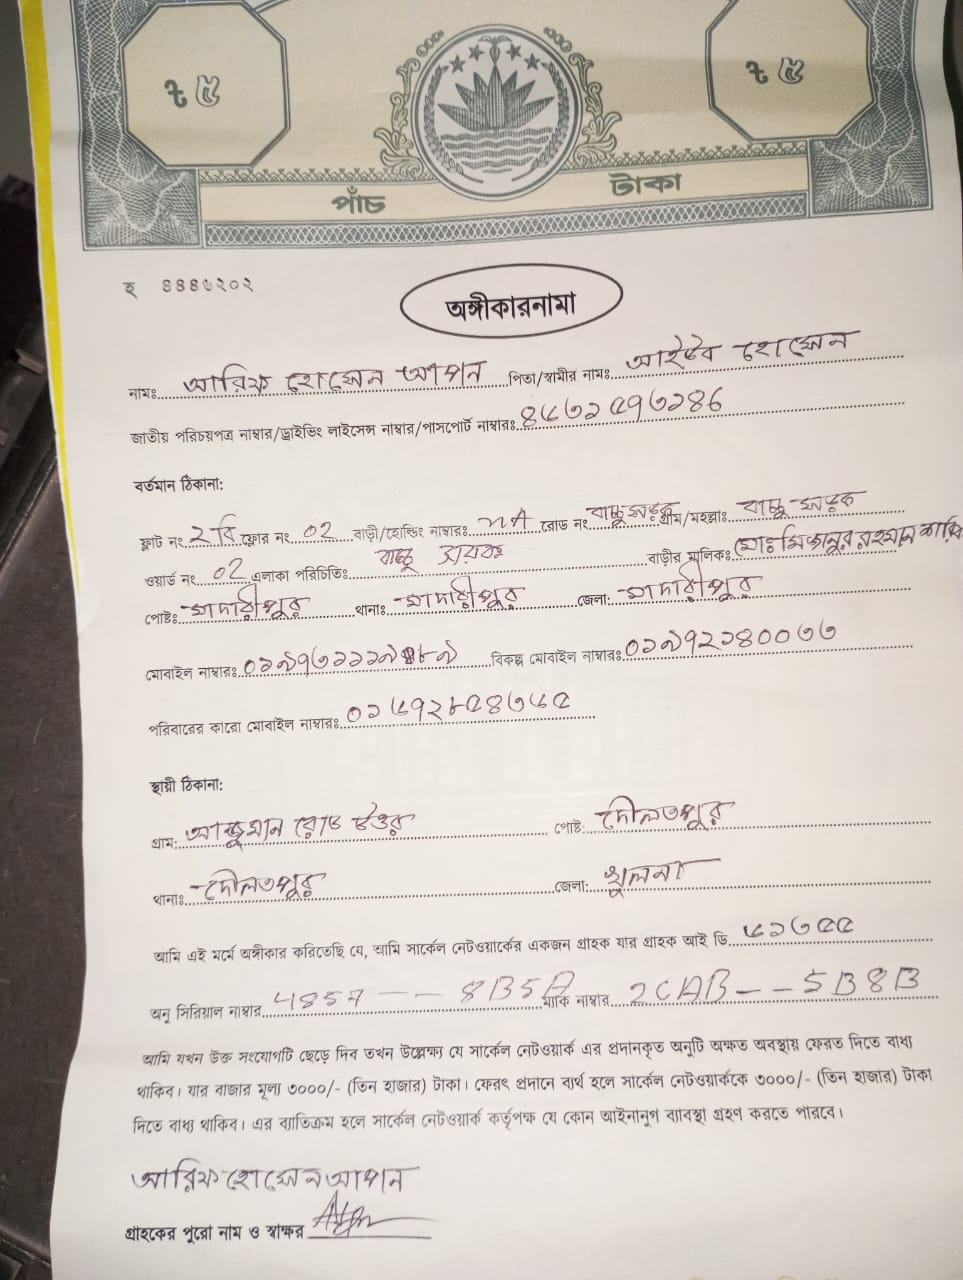 ৳ ৫ ৳ ৫
পাঁচ টাকা
হ ৪৪৪৬২০২
অঙ্গীকারনামা
নামঃ আরিফ হোসেন আপন পিতা/স্বামীর নামঃ হোসেন
জাতীয় পরিচয়পত্র নাম্বার/ড্রাইভিং লাইসেন্স নাম্বার/পাসপোর্ট নাম্বারঃ
বর্তমান ঠিকানা:
ফ্লাট নং ২ বি ফ্লোর নং 02 বাড়ী/হোল্ডিং নাম্বারঃ NA রোড নং গ্রাম/মহল্লাঃ
ওয়ার্ড নং 02 এলাকা পরিচিতিঃ বাড়ীর মালিকঃ মোঃ মিজানুর রহমান
পোষ্টঃ মাদারীপুর থানাঃ মাদারীপুর জেলা: মাদারীপুর
মোবাইল নাম্বারঃ বিকল্প মোবাইল নাম্বারঃ
পরিবারের কারো মোবাইল নাম্বারঃ
স্থায়ী ঠিকানা:
গ্রাম: রোড উত্তর পোষ্ট: দৌলতপুর
থানাঃ দৌলতপুর জেলা: খুলনা
আমি এই মর্মে অঙ্গীকার করিতেছি যে, আমি সার্কেল নেটওয়ার্কের একজন গ্রাহক যার গ্রাহক আই ডি ৬১৩৫৫
অনু সিরিয়াল নাম্বার 4857 -- 8B5A ম্যাক নাম্বার 2CAB -- 5B8B
আমি যখন উক্ত সংযোগটি ছেড়ে দিব তখন উল্লেক্ষ্য যে সার্কেল নেটওয়ার্ক এর প্রদানকৃত অনুটি অক্ষত অবস্থায় ফেরত দিতে বাধ্য
থাকিব। যার বাজার মূল্য ৩০০০/- (তিন হাজার) টাকা। ফেরৎ প্রদানে ব্যর্থ হলে সার্কেল নেটওয়ার্ককে ৩০০০/- (তিন হাজার) টাকা
দিতে বাধ্য থাকিব। এর ব্যাতিক্রম হলে সার্কেল নেটওয়ার্ক কর্তৃপক্ষ যে কোন আইনানুগ ব্যাবস্থা গ্রহণ করতে পারবে।
আরিফ হোসেন আপন
গ্রাহকের পুরো নাম ও স্বাক্ষর